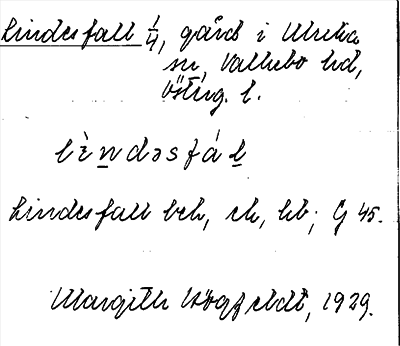 Lindesfall 1/4, gård i Ulrika
sn, Vallebo hd,
Östug. l.
lìndəsfál
Lindesfall beb, ek, kb; G 45.
Margith Högfeldt, 1929.